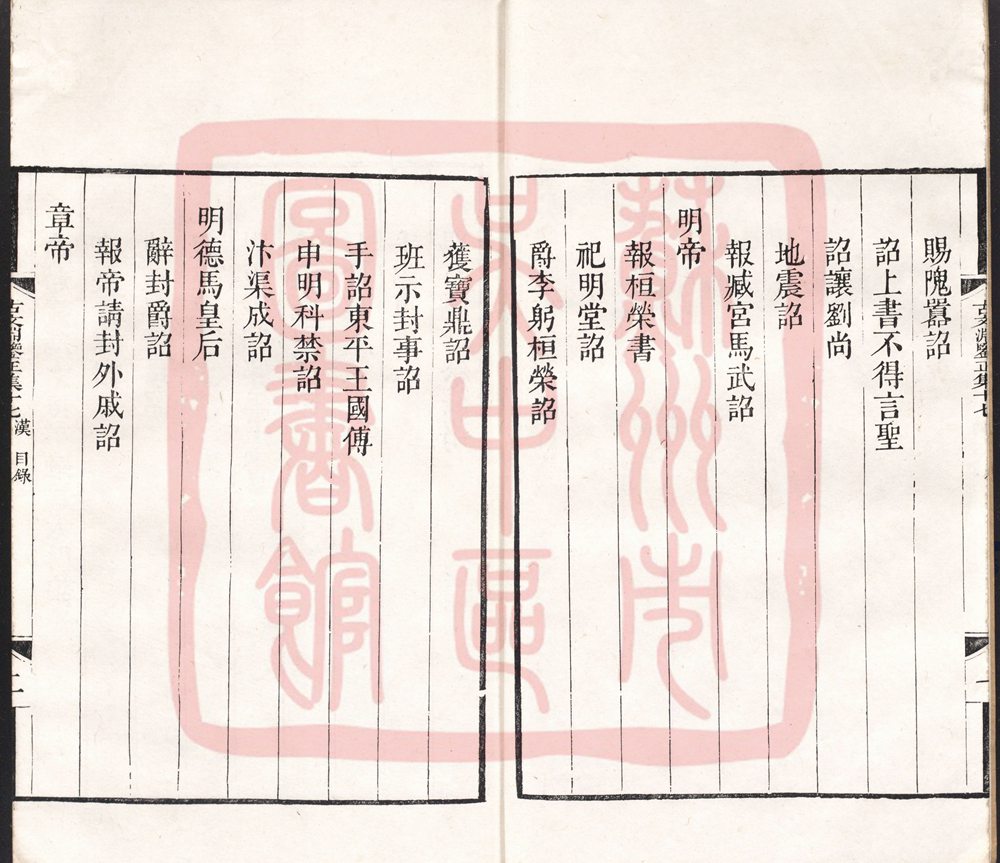 古文淵鑒正集十七
賜隗囂詔
詔上書不得言聖
詔讓劉尚
地震詔
報臧宮馬武詔
明帝
報桓榮書
祀明堂詔
爵李躬桓榮詔
獲寶鼎詔
班示封事詔
手詔東平王國傅
申明科禁詔
汴渠成詔
明德馬皇后
辭封爵詔
報帝請封外戚詔
章帝
漢 目錄
二
蘇州市
吳中區
圖書館